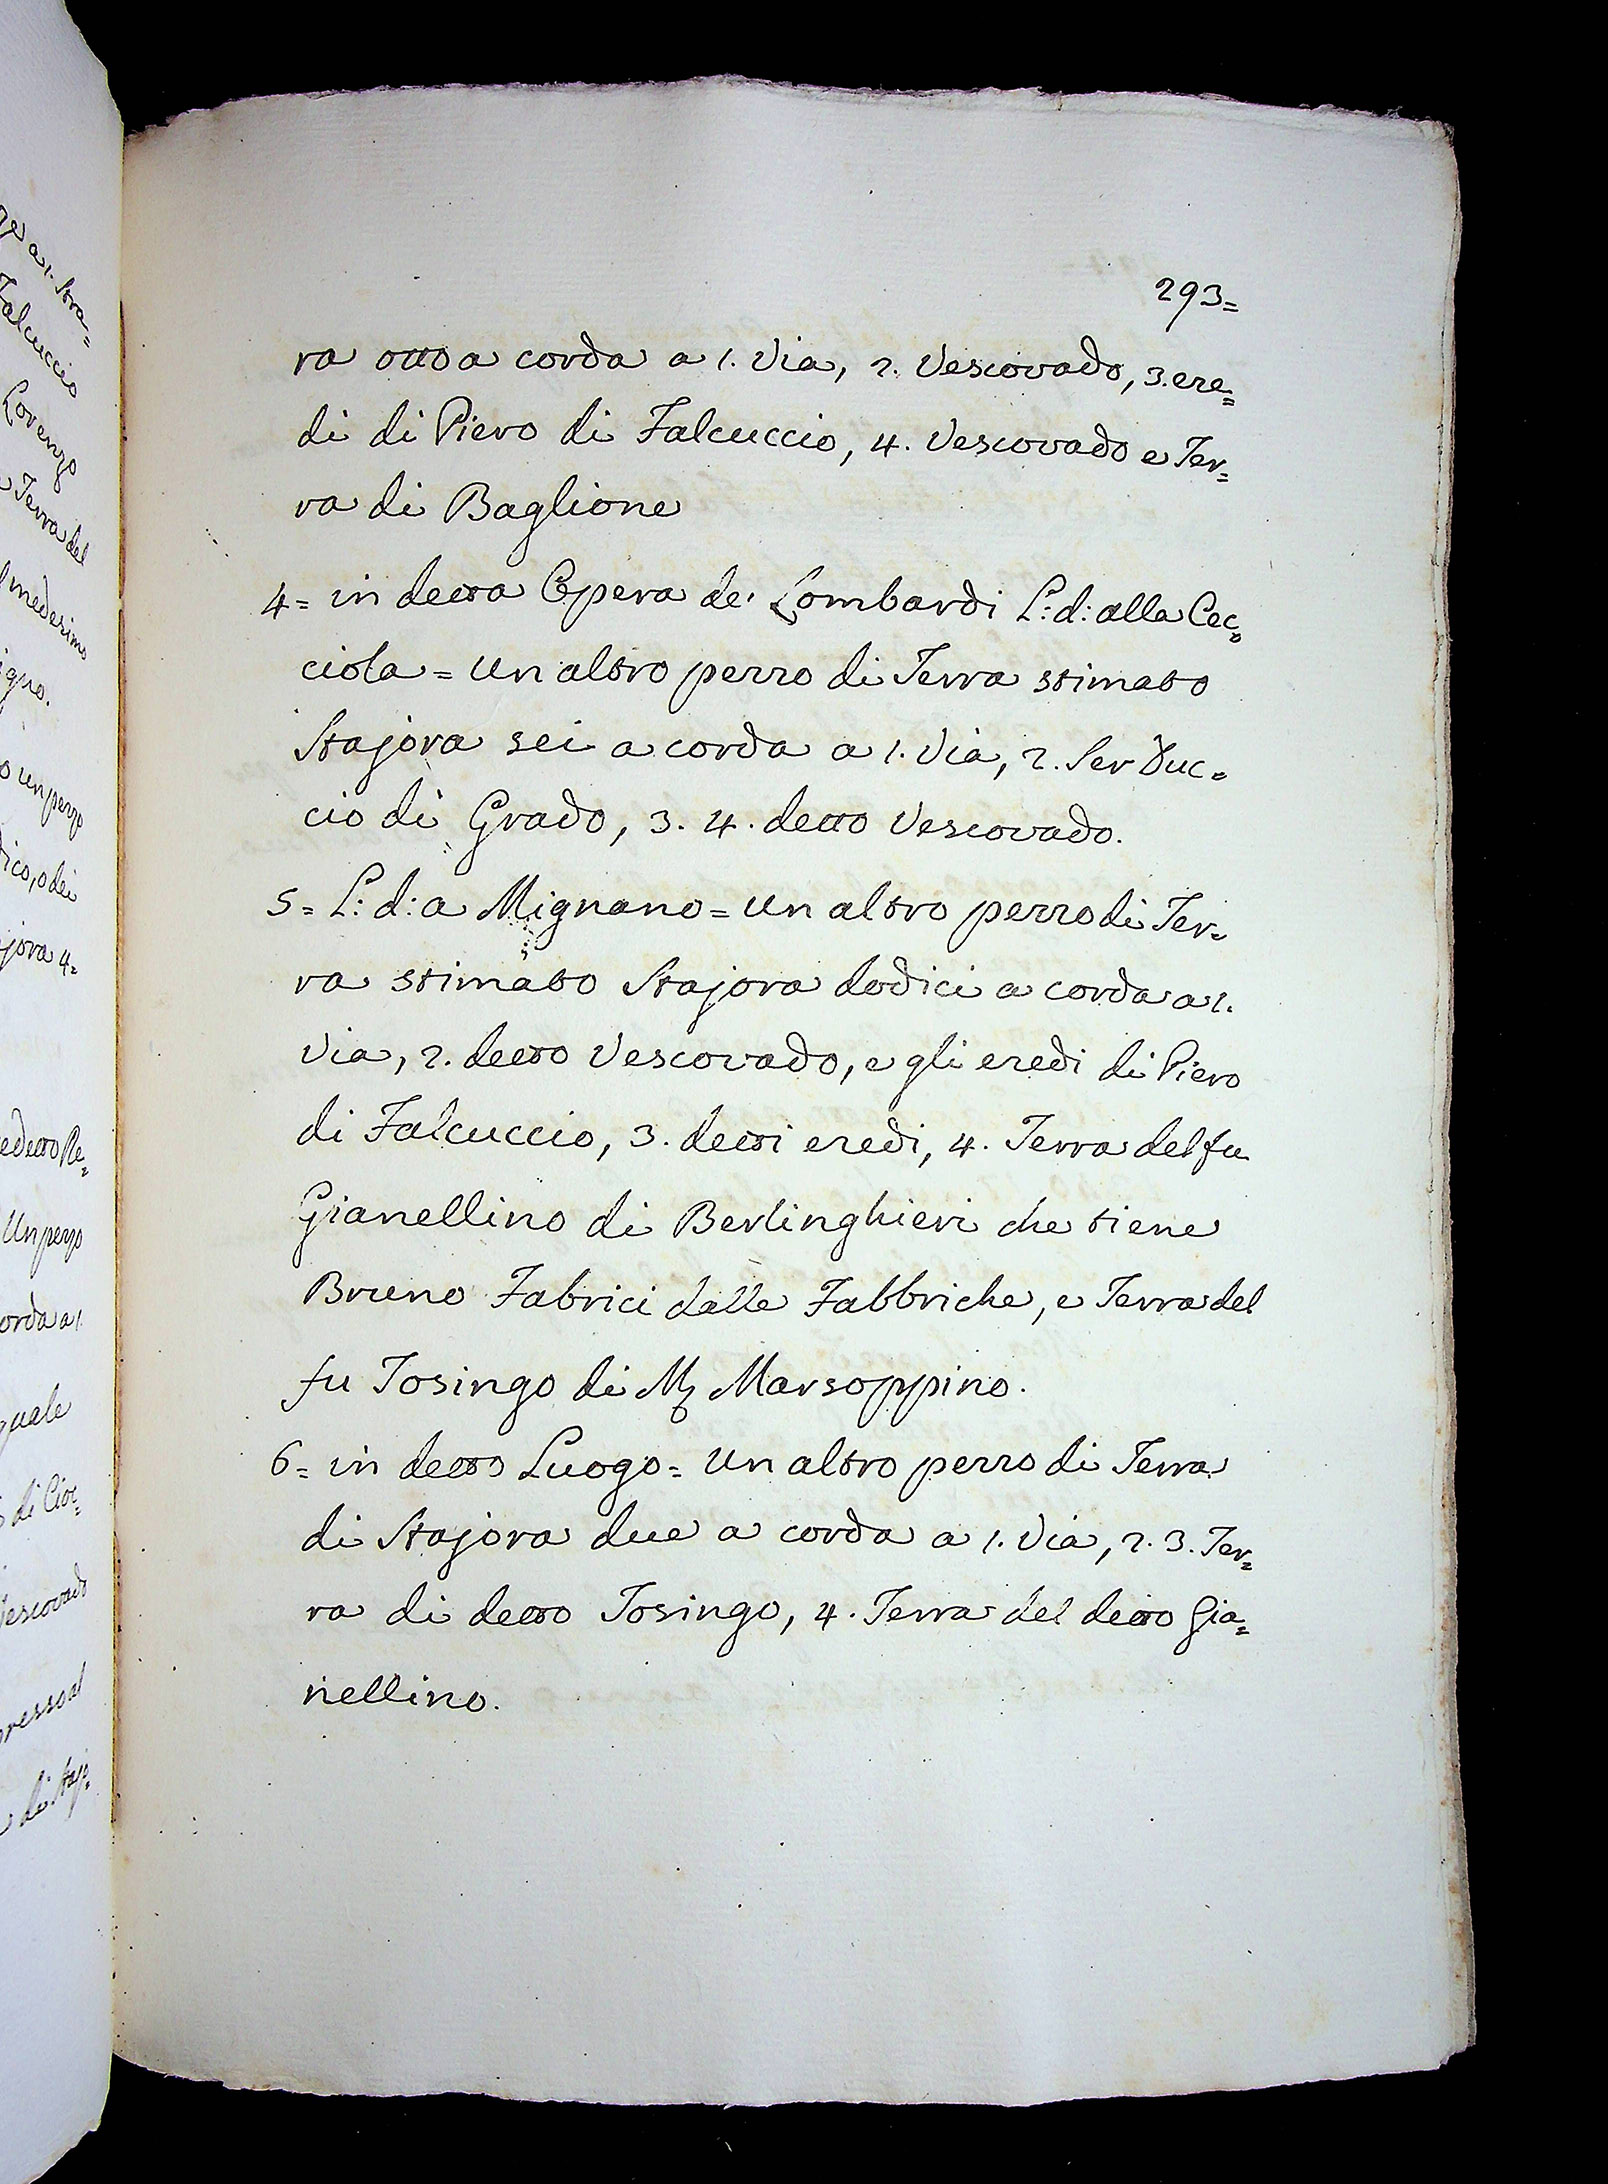 ge a 1. Stra=
Falcuccio
Lorenzo
Terra del
medesimo
un pezzo
dico, o dei
jora 4=
Un pezzo
orda a 1.
quale
di Cioc=
Vescovado
presso al
di Staj=
293=
ra otto a corda a 1. Via, 2. Vescovado, 3. ere=
di di Piero di Falcuccio, 4. Vescovado e Ter=
ra di Baglione
4= in detta Opera de' Lombardi L: d: alla Cec=
ciola = Un altro pezzo di Terra stimato
Stajora sei a corda a 1. Via, 2. Ser Duc=
cio di Grado, 3. 4. detto Vescovado.
5= L: d: a Mignano = Un altro pezzo di Ter=
ra stimato Stajora dodici a corda a 1.
Via, 2. detto Vescovado, e gli eredi di Piero
di Falcuccio, 3. detti eredi, 4. Terra del fu
Gianellino di Berlinghieri che tiene
Bruno Fabrici dalle Fabbriche, e Terra del
fu Tosingo di M. Marsoppino.
6= in detto Luogo = Un altro pezzo di Terra
di Stajora due a corda a 1. Via, 2. 3. Ter=
ra di detto Tosingo, 4. Terra del detto Gia=
nellino.